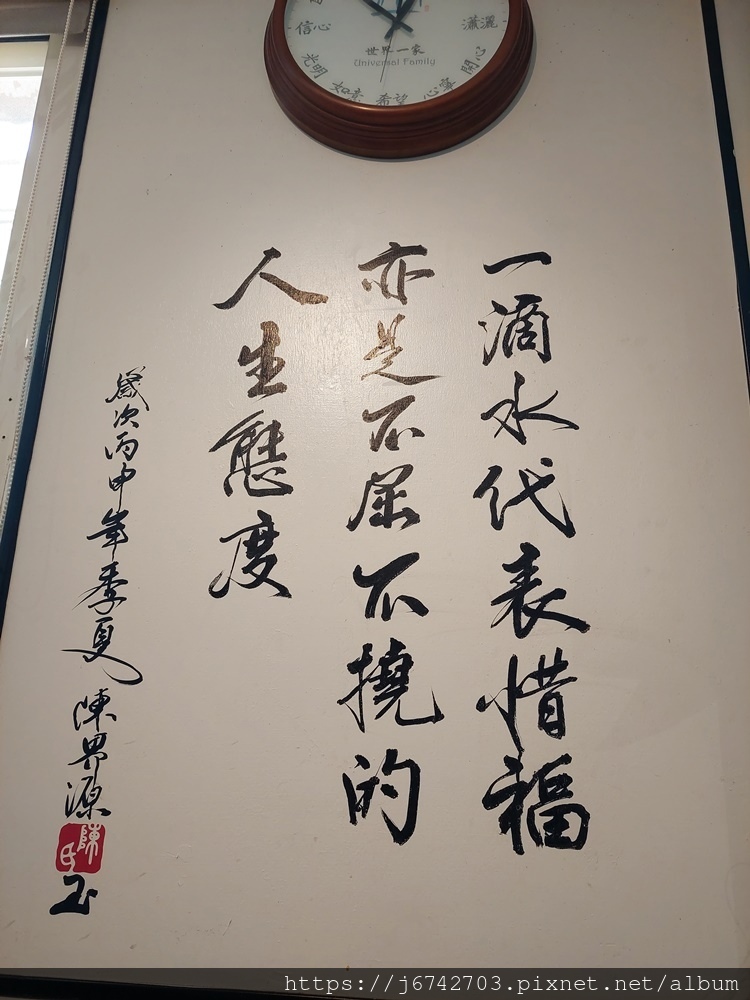 信心
瀟灑
世界一家
Universal Family
光明
如意
希望
心寧
開心
一滴水代表惜福
亦是不屈不撓的
人生態度
歲次丙申年季夏 陳界源
陳氏
https://j6742703.pixnet.net/album